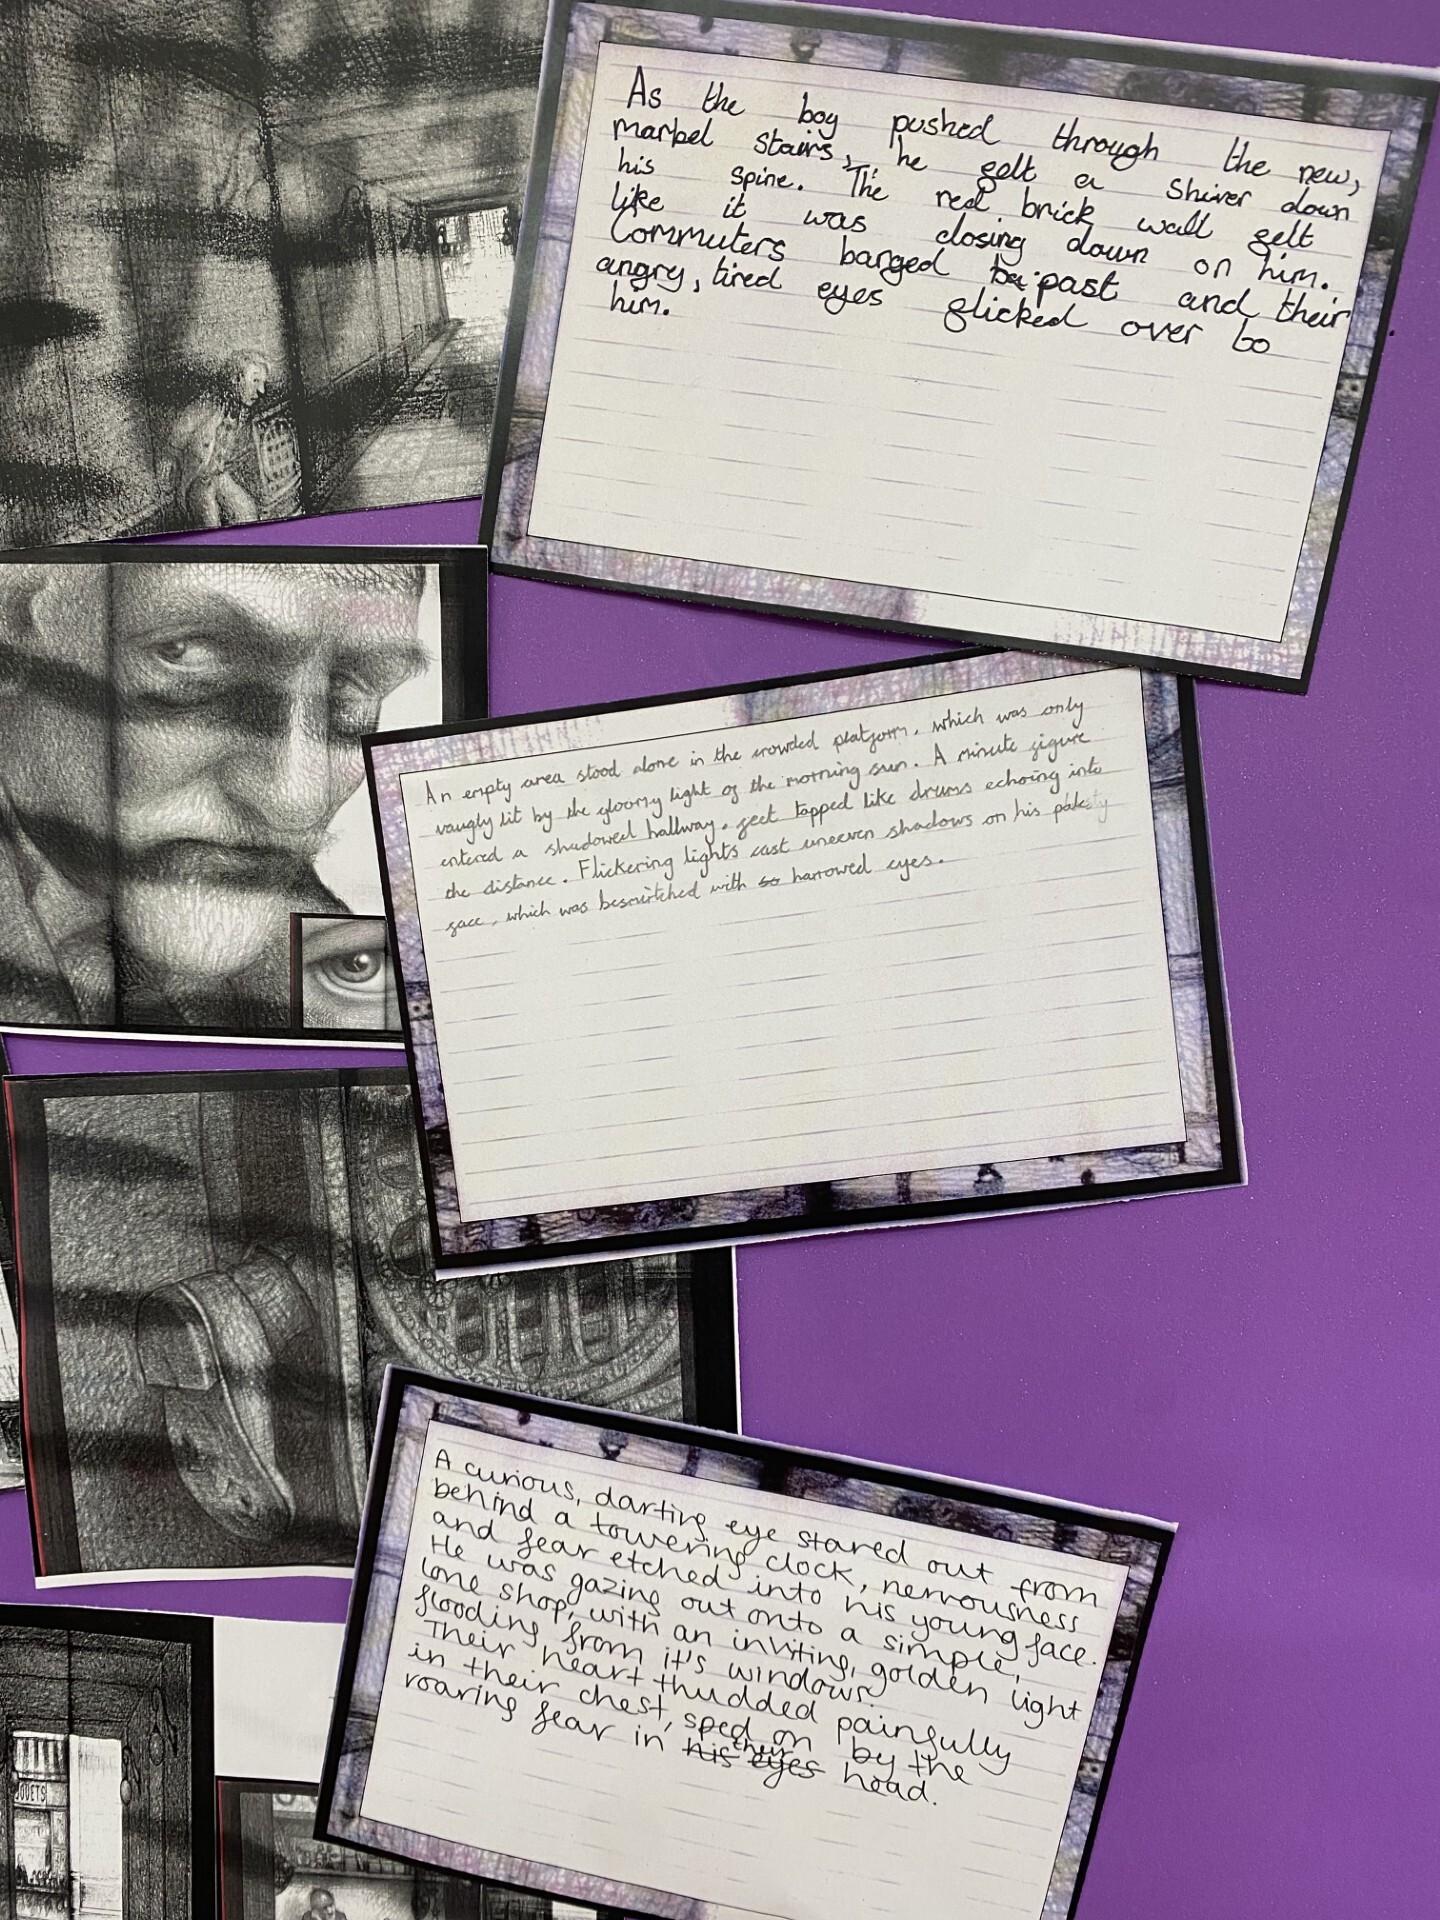 As the boy pushed through the new,
marbel stairs, he felt a shiver down
his spine. The red brick wall felt
like it was closing down on him.
Commuters barged past and their
angry, tired eyes flicked over bo
him.
An empty area stood alone in the crowded platform, which was only
vaugly lit by the gloomy light of the morning sun. A minute figure
entered a shadowed hallway. feet tapped like drums echoing into
the distance. Flickering lights cast uneven shadows on his
face, which was besmirtched with so harrowed eyes.
A curious, darting eye stared out from
behind a towering clock, nervousness
and fear etched into his young face.
He was gazing out onto a simple,
lone shop, with an inviting, golden light
flooding from it's windows.
Their heart thudded painfully
in their chest, sped on by the
roaring fear in his eyes their head.
JOUETS